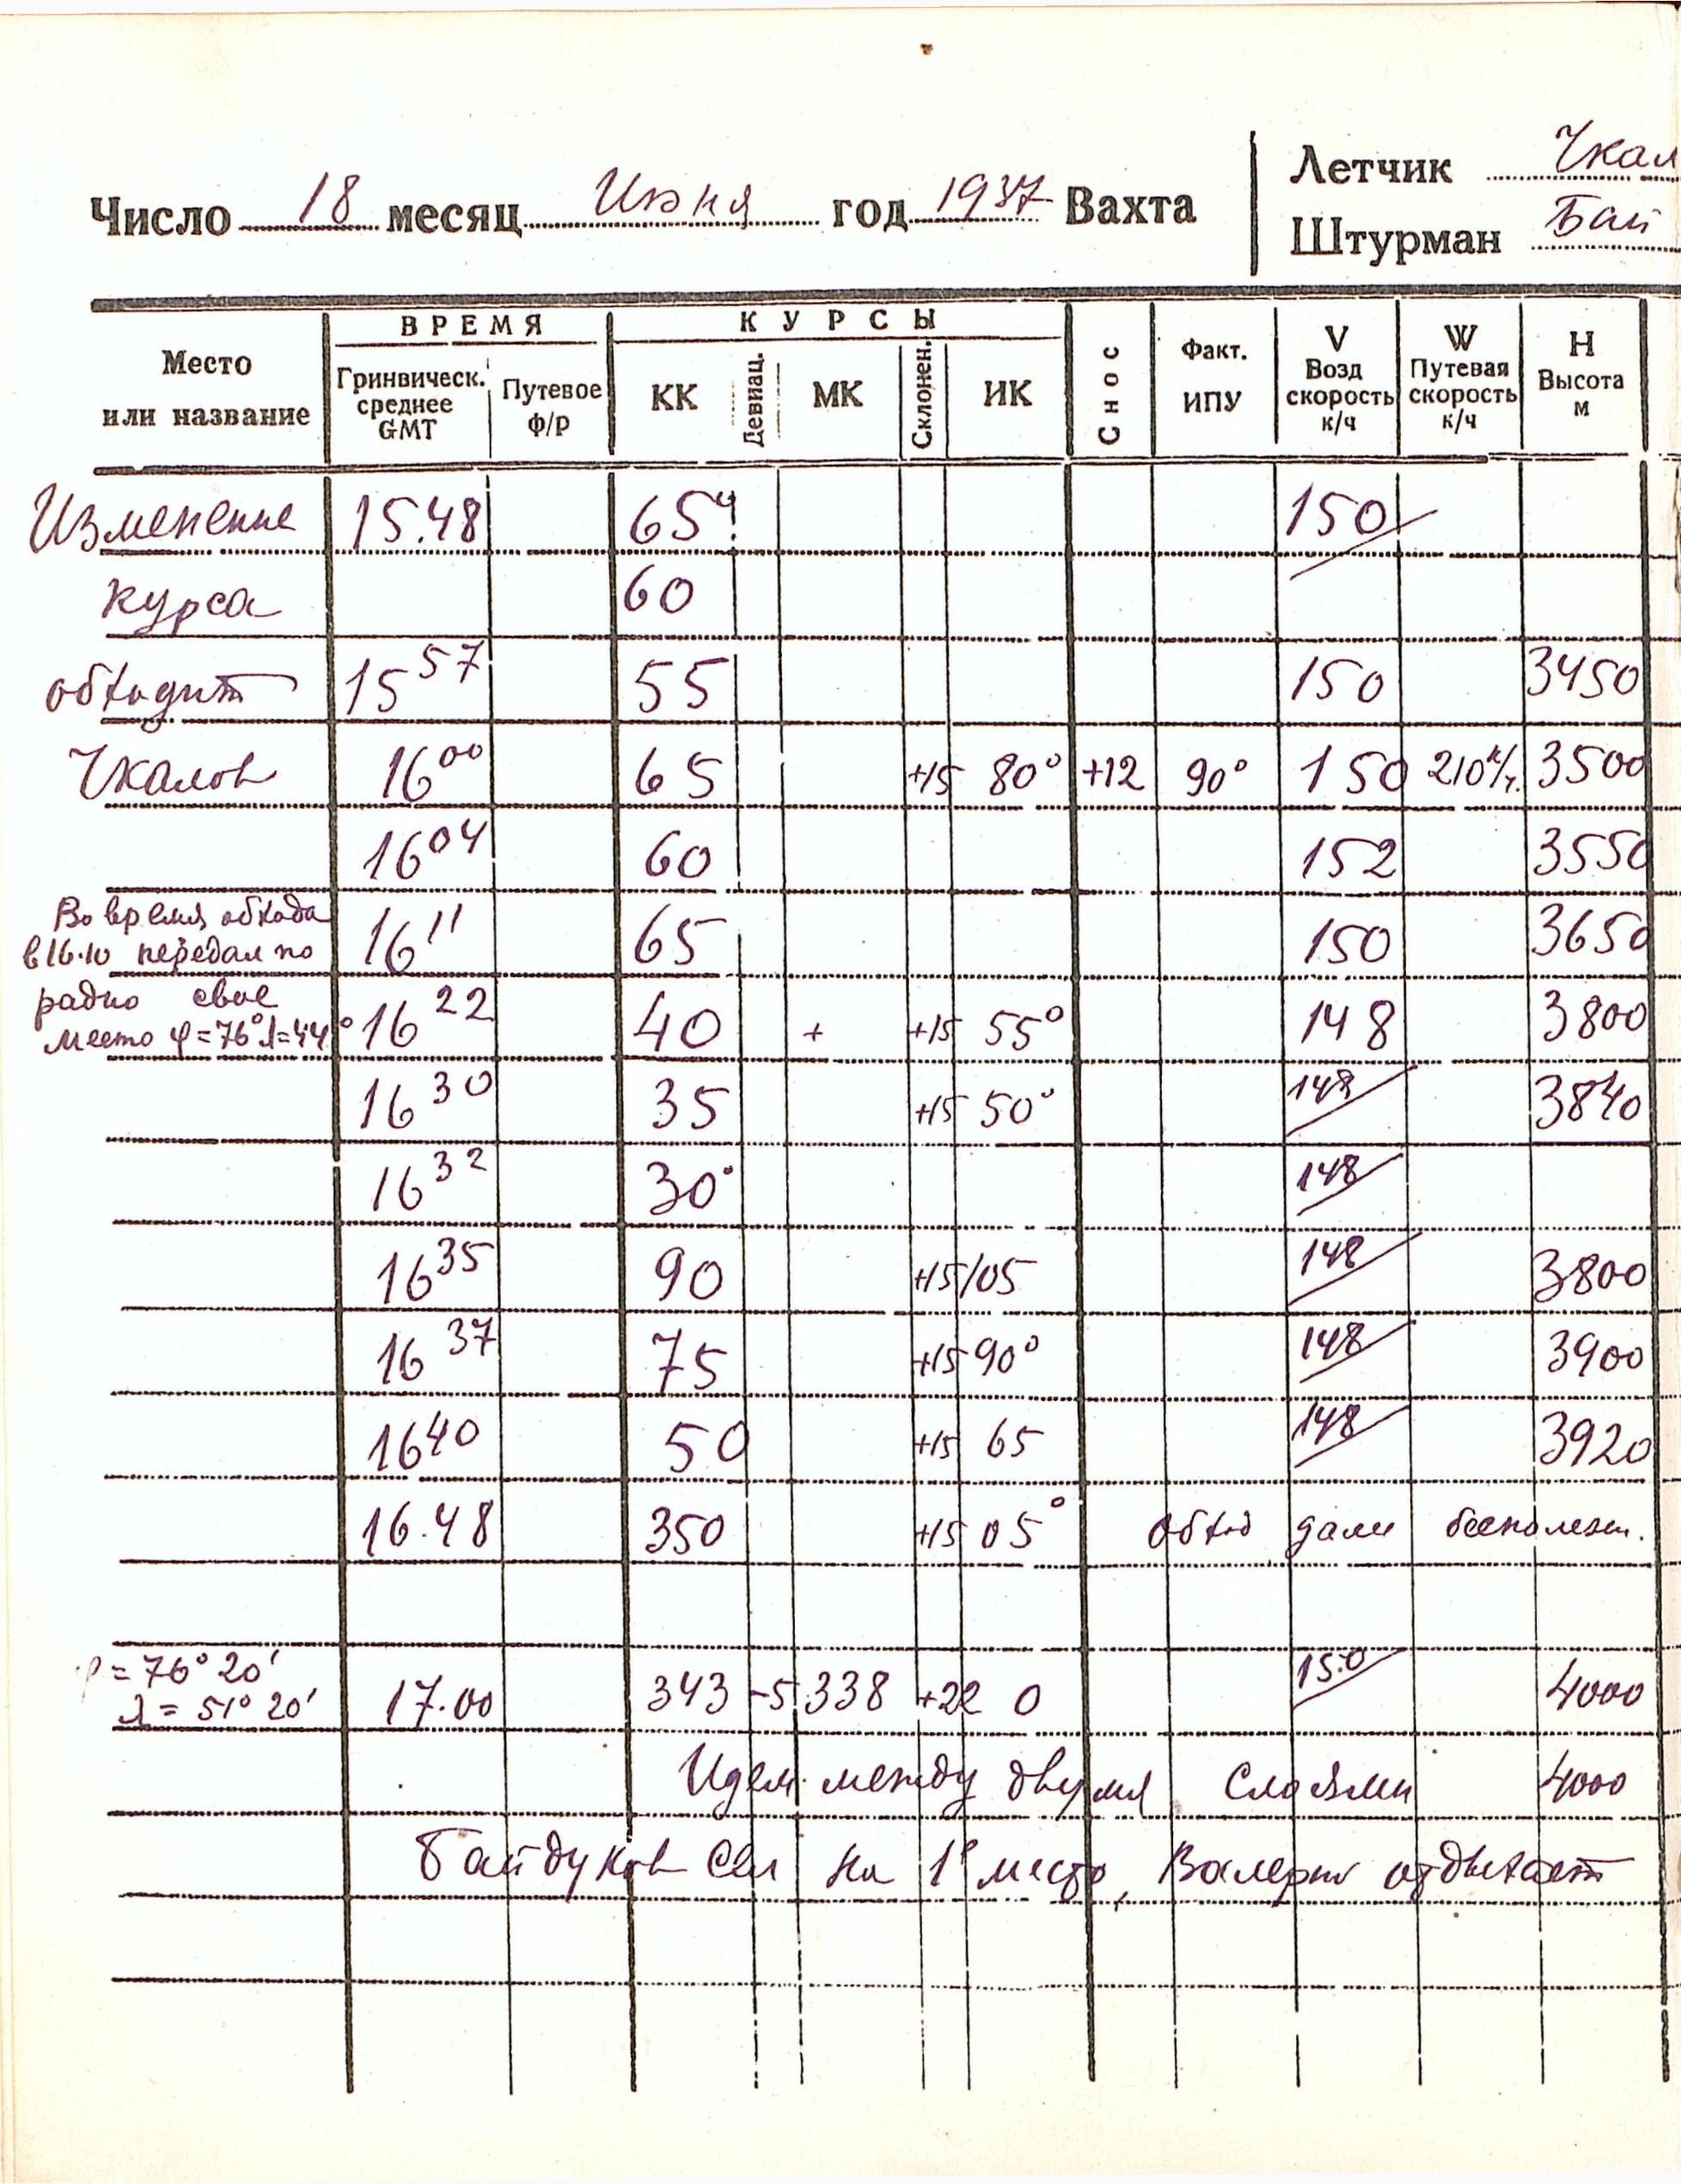 Летчик Чкал
Число 18 месяц Июня год 1937 Вахта
Штурман Бай
Место или название
ВРЕМЯ
Гринвическ. среднее GMT
Путевое ф/р
КУРСЫ
КК
Девиац.
МК
Склонен.
ИК
Снос
Факт. ИПУ
V Возд скорость к/ч
W Путевая скорость к/ч
H Высота м
Изменение 15.48 65 150
курса 60
обходит 15 57 55 150 3450
Чкалов 16 00 65 +15 80° +12 90° 150 210 к/ч. 3500
16 04 60 152 3550
Во время обхода
в 16.10 передал по 16 11 65 150 3650
радио свое
место φ=76° λ=44° 16 22 40 + +15 55° 148 3800
16 30 35 +15 50° 148 3840
16 32 30° 148
16 35 90 +15 105 148 3800
16 37 75 +15 90° 148 3900
16 40 50 +15 65 148 3920
16.48 350 +15 05° обход дали бесполезн.
φ=76° 20'
λ = 51° 20' 17.00 343 -5 338 +22 0 150 4000
Идем между двумя слоями 4000
Байдуков сел на 1е место, Валерий отдыхает